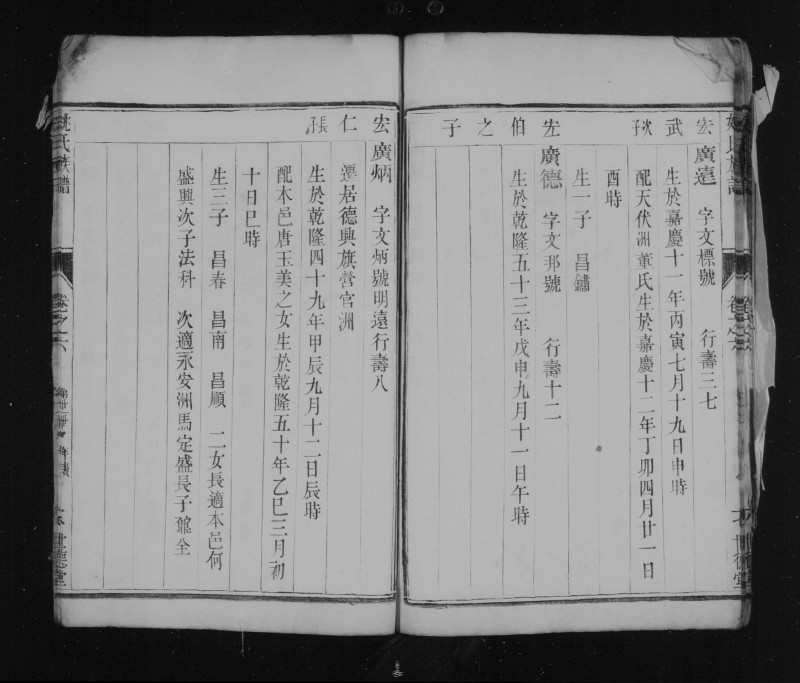 宏廣遠 字文標號 行壽三七
武 生於嘉慶十一年丙寅七月十九日申時
次子 配天伏洲董氏生於嘉慶十二年丁卯四月廿一日
酉時
生一子 昌鏽
宏廣德 字文邦號 行壽十二
伯 生於乾隆五十三年戊申九月十一日午時
之
子
宏廣炳 字文炳號明遠行壽八
仁 遷居德興旗營官洲
長子 生於乾隆四十九年甲辰九月十二日辰時
配本邑唐玉美之女生於乾隆五十年乙巳三月初
十日巳時
生三子 昌春 昌南 昌順 二女長適本邑何
盛興次子法科 次適永安洲馬定盛長子鼐全
姚氏族譜 卷之六 年表 世德堂